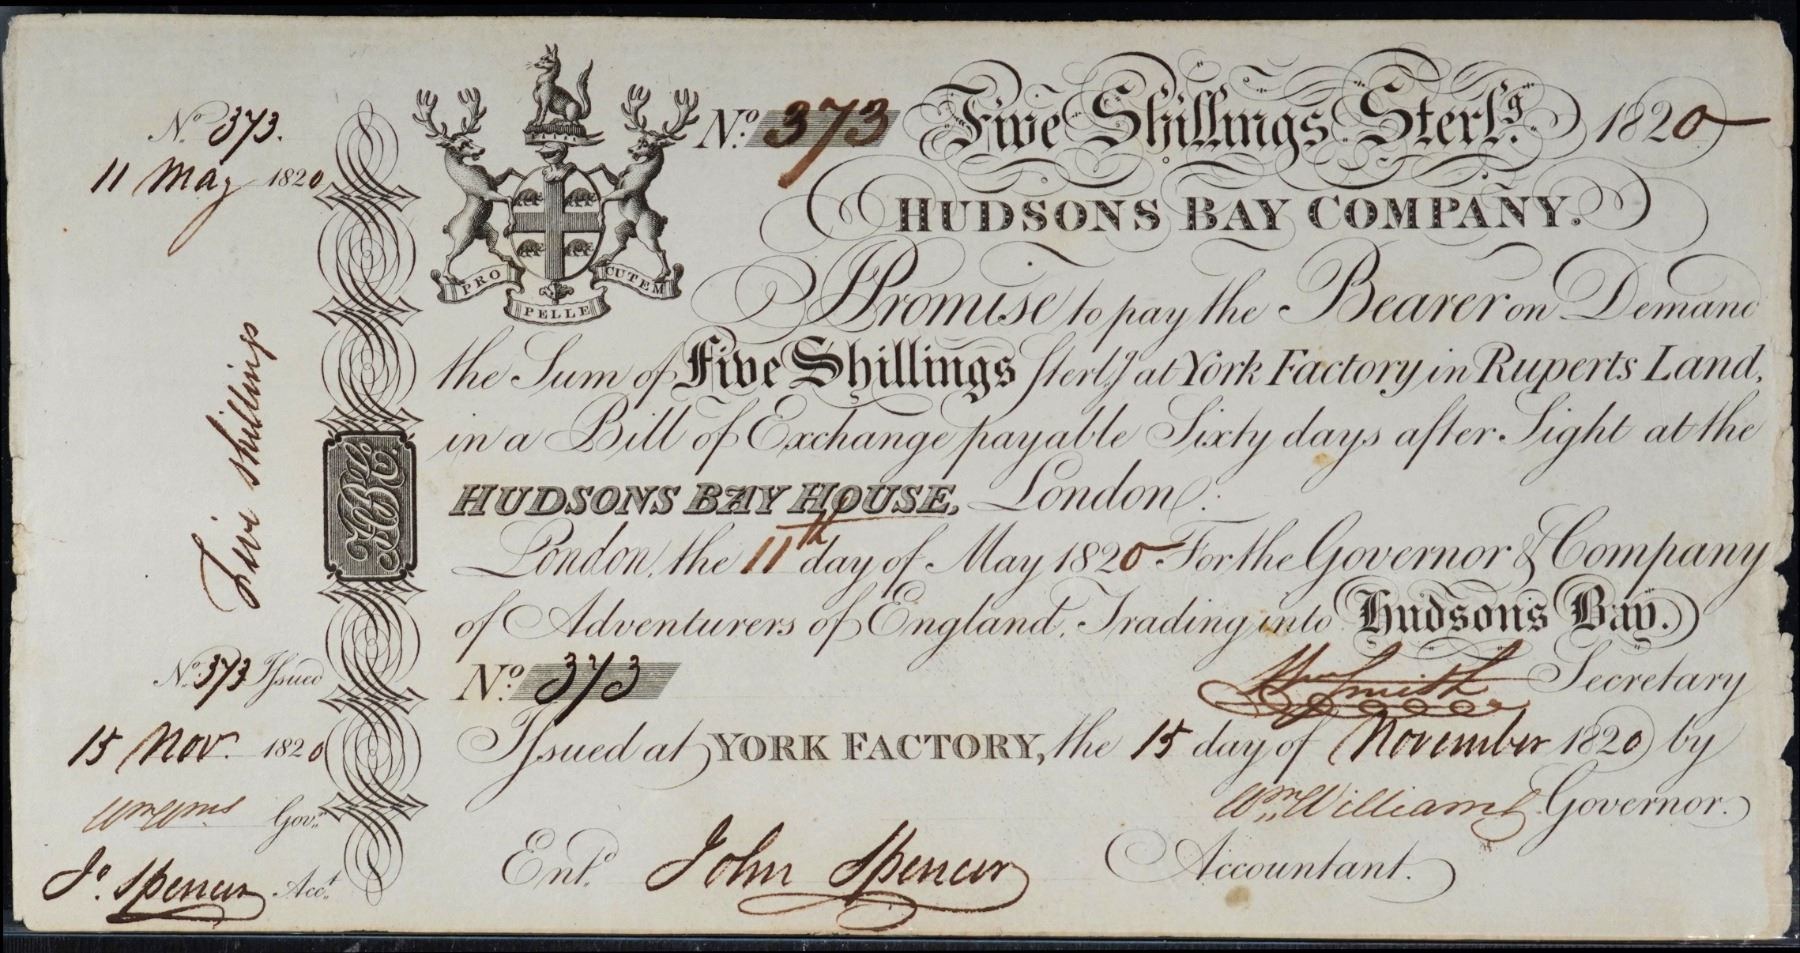 No. 373.
11 May 1820
Five shillings
HBC
No. 373 Issued
15 Nov. 1820
Wm Wms Govr.
Jo. Spencer Acct.
PRO PELLE CUTEM
No. 373 Five Shillings Sterlg. 1820
HUDSONS BAY COMPANY.
I Promise to pay the Bearer on Demand
the Sum of Five Shillings Sterlg. at York Factory in Ruperts Land,
in a Bill of Exchange payable Sixty days after Sight at the
HUDSONS BAY HOUSE, London.
London, the 11th day of May 1820 For the Governor & Company
of Adventurers of England, Trading into Hudson's Bay.
No. 373
Wm Smith Secretary
Issued at YORK FACTORY, the 15 day of November 1820 by
Wm. Williams Governor.
Entd. John Spencer Accountant.